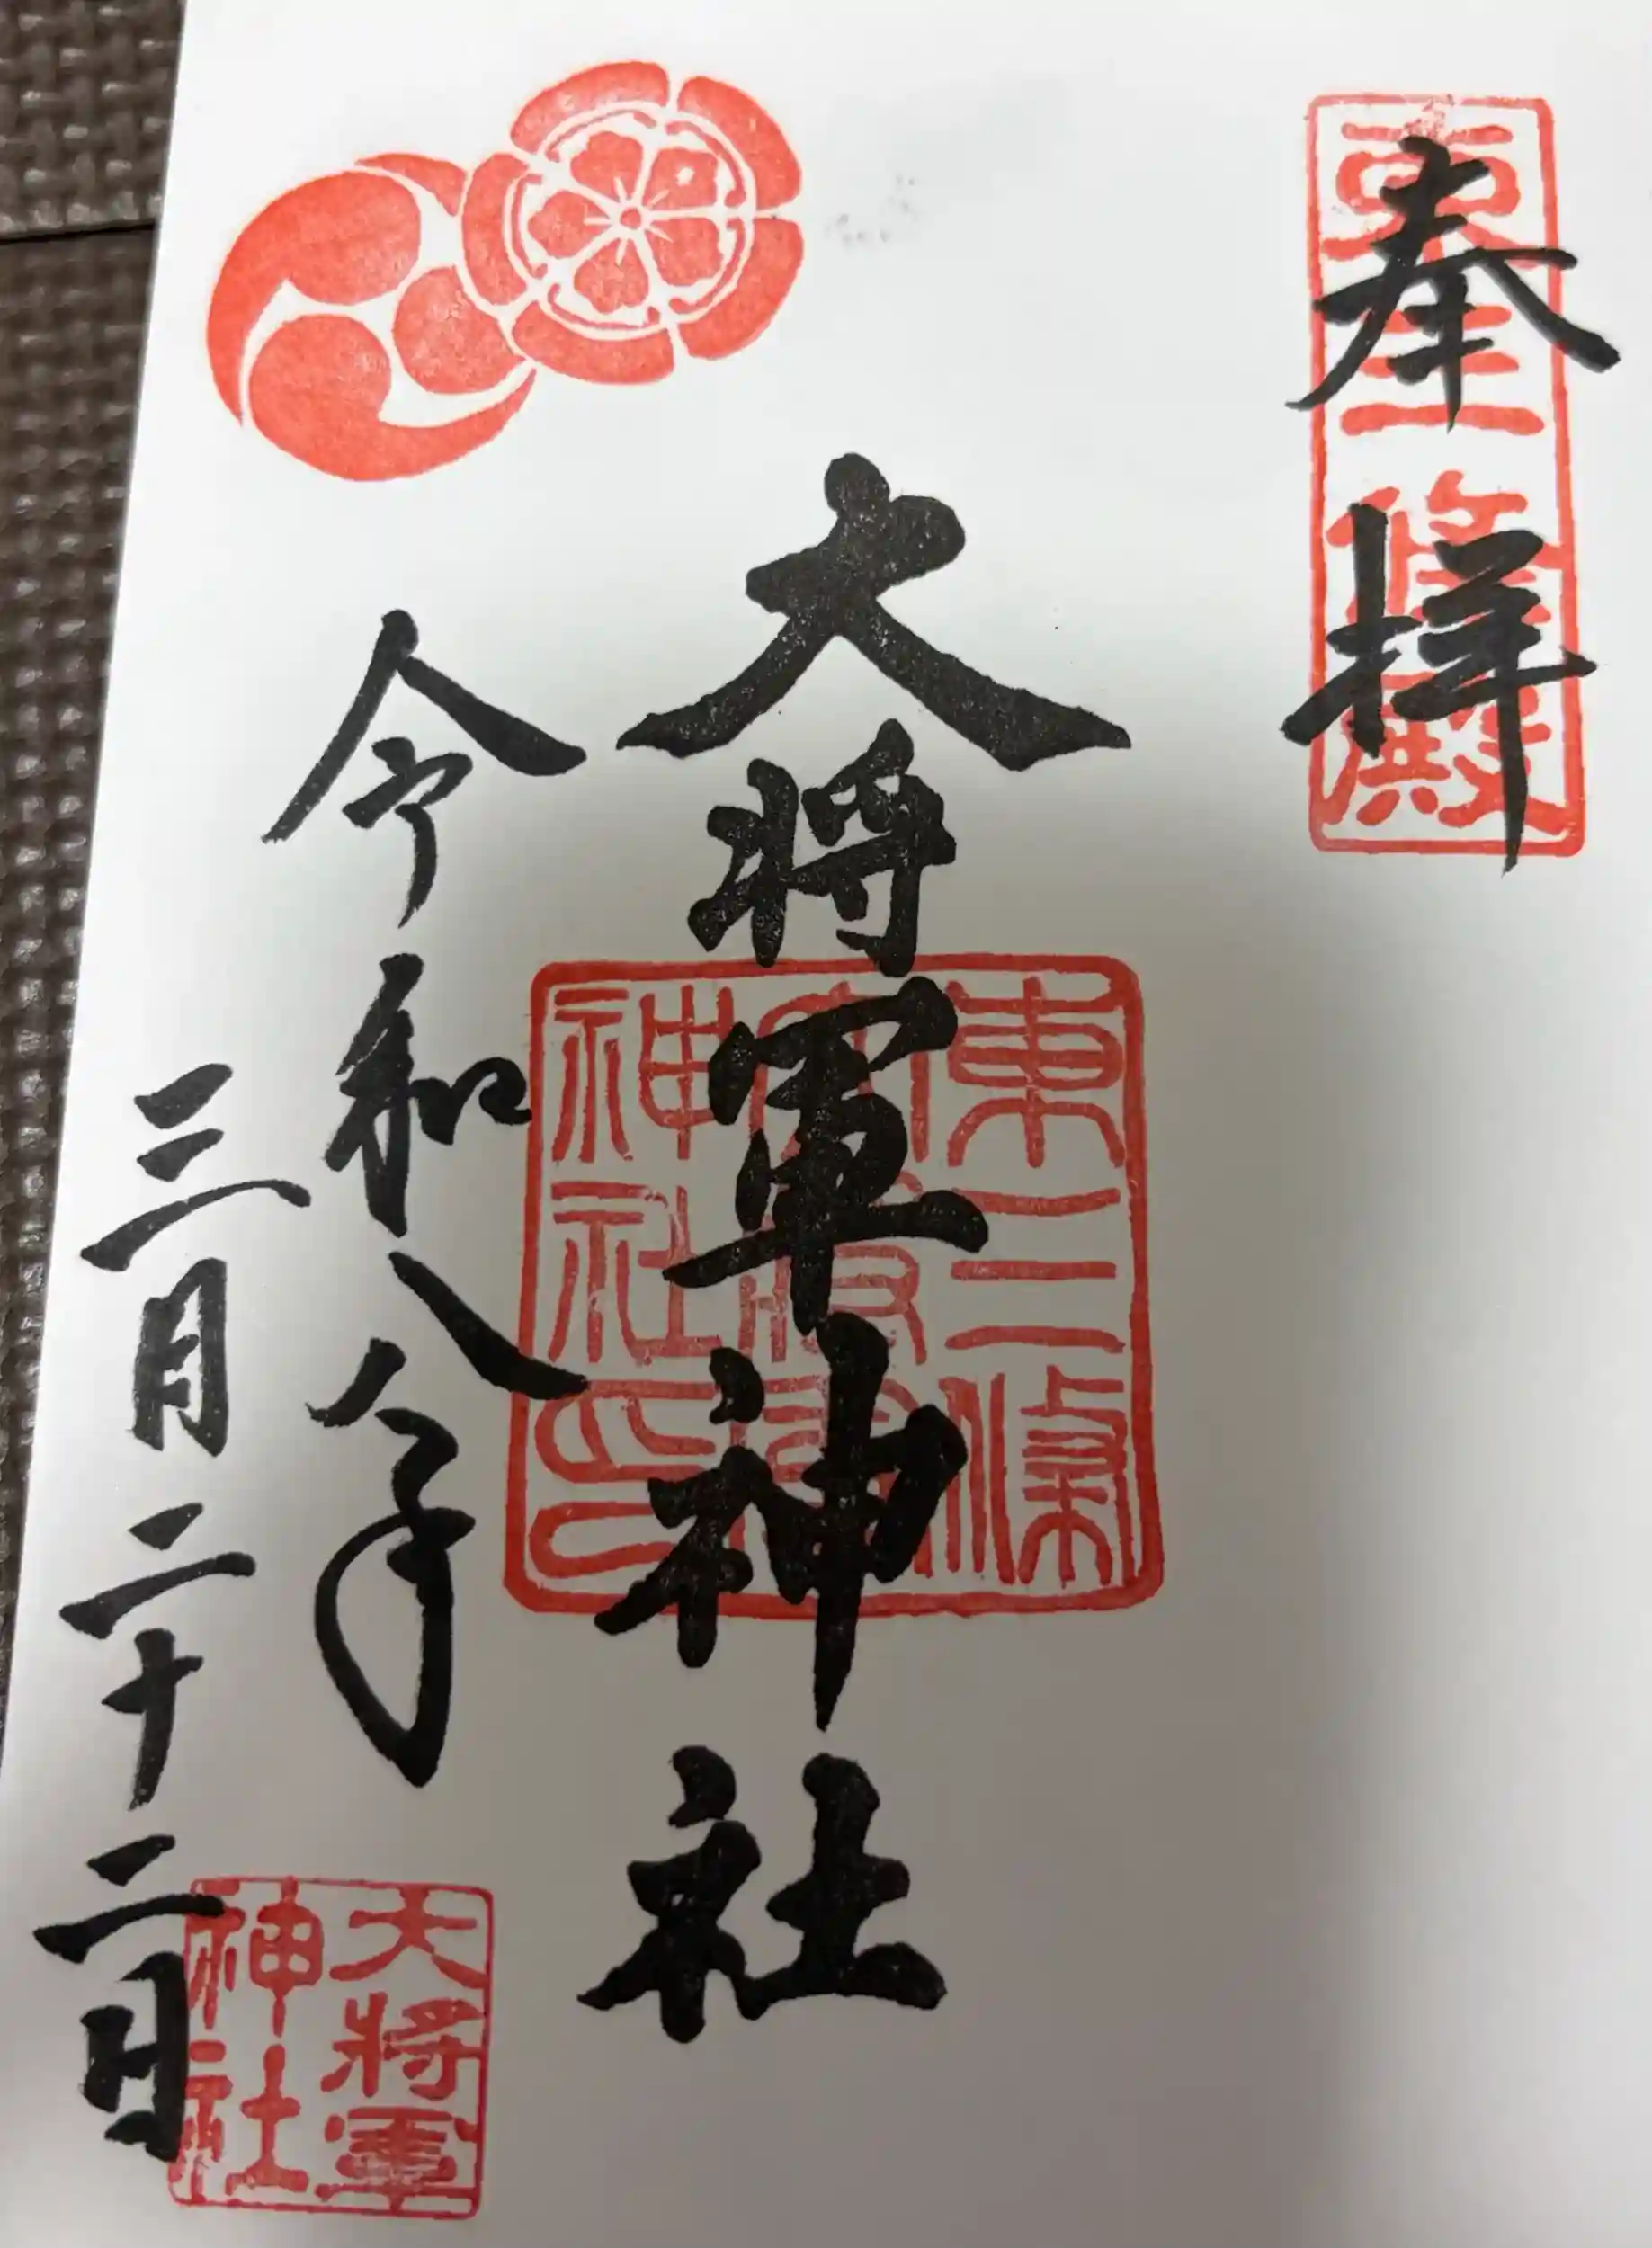 奉拝
東三條殿
大将軍神社
東三條
大將軍
神社印
令和八年
三月二十二日
大將軍
神社